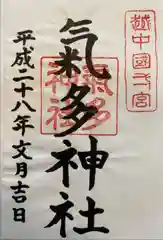 越中國弌宮
氣多神社
氣多神社
平成二十八年文月吉日